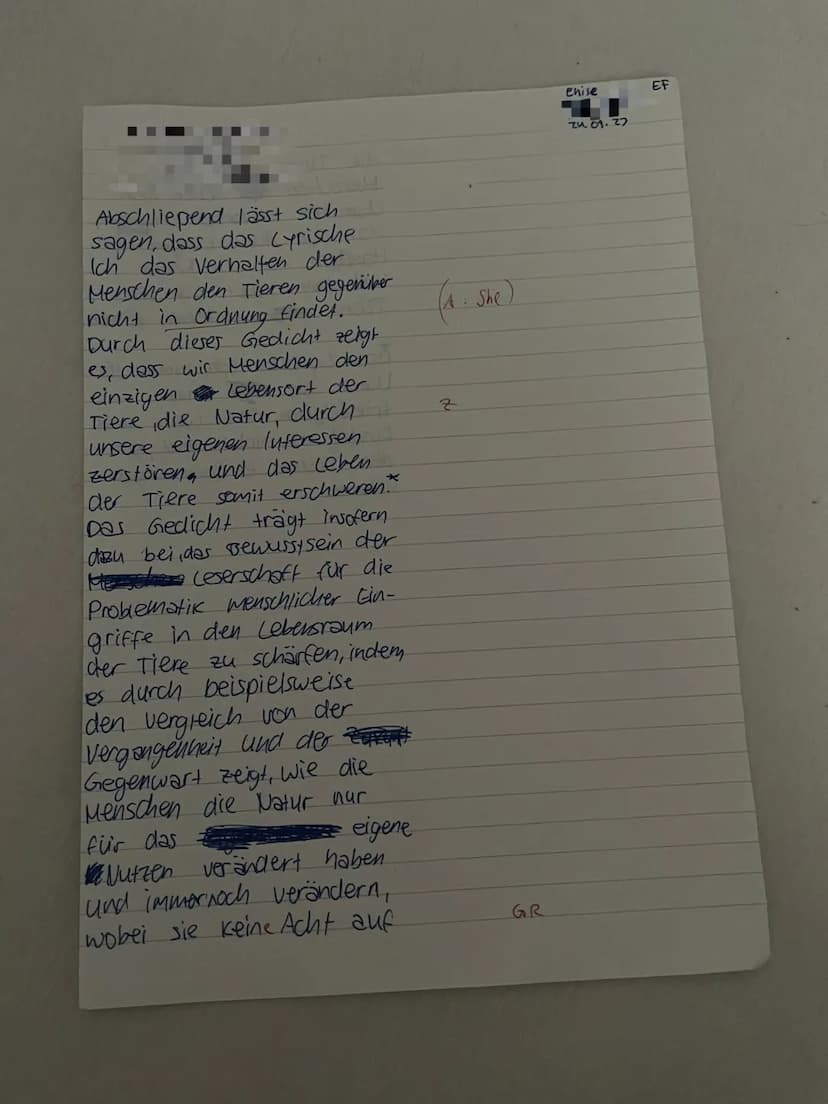 Enise
EF
24.01.23
Abschließend lässt sich
sagen, dass das Lyrische
Ich das Verhalten der
Menschen den Tieren gegenüber
nicht in Ordnung findet.
(A: Stil)
Durch dieses Gedicht zeigt
es, dass wir Menschen den
einzigen Lebensort der
Tiere, die Natur, durch
Z
unsere eigenen Interessen
zerstören, und das Leben
der Tiere somit erschweren.*
Das Gedicht trägt insofern
dazu bei, das Bewusstsein der
Leserschaft für die
Problematik menschlicher Ein-
griffe in den Lebensraum
der Tiere zu schärfen, indem
es durch beispielsweise
den Vergleich von der
Vergangenheit und der
Gegenwart zeigt, wie die
Menschen die Natur nur
für das eigene
Nutzen verändert haben
und immernoch verändern,
wobei sie keine Acht auf
GR